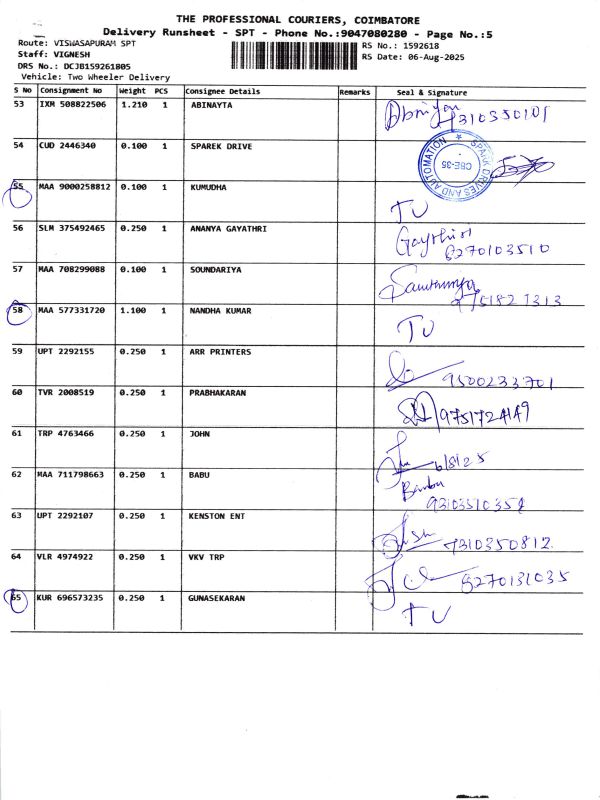 THE PROFESSIONAL COURIERS, COIMBATORE
Delivery Runsheet - SPT - Phone No.:9047080280 - Page No.:5
Route: VISWASAPURAM SPT
RS No.: 1592618
Staff: VIGNESH
RS Date: 06-Aug-2025
DRS No.: DCJB159261805
Vehicle: Two Wheeler Delivery
S No Consignment No Weight PCS Consignee Details Remarks Seal & Signature
53 IXM 508822506 1.210 1 ABINAYTA
54 CUD 2446340 0.100 1 SPAREK DRIVE
SPARK DRIVES AND AUTOMATION CBE-35
55 MAA 9000258812 0.100 1 KUMUDHA TU
56 SLM 375492465 0.250 1 ANANYA GAYATHRI
8270103510
57 MAA 708299088 0.100 1 SOUNDARIYA
58 MAA 577331720 1.100 1 NANDHA KUMAR TU
59 UPT 2292155 0.250 1 ARR PRINTERS
9500233701
60 TVR 2008519 0.250 1 PRABHAKARAN 9751724149
61 TRP 4763466 0.250 1 JOHN
6/8/25
62 MAA 711798663 0.250 1 BABU
63 UPT 2292107 0.250 1 KENSTON ENT
7310350812
64 VLR 4974922 0.250 1 VKV TRP
8270131035
65 KUR 696573235 0.250 1 GUNASEKARAN TU